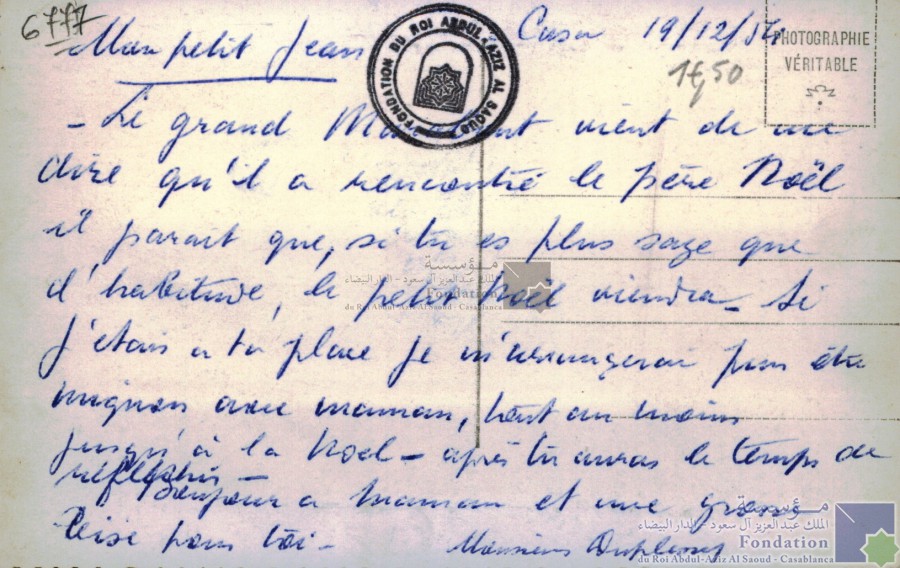 6777
Casa 19/12/54
Mon petit Jean
FONDATION DU ROI ABDUL-AZIZ AL SAOUD
PHOTOGRAPHIE
VÉRITABLE
1f,50
- Le grand vient de me
dire qu'il a rencontré le père Noël
il parait que, si tu es plus sage que
d'habitude, le petit Noël viendra - Si
j'étais a ta place je m'arrangerai pour être
mignon avec maman, tout au moins
jusqu'à la Noel - après tu auras le temps de
réfléchir -
Bonjour a maman et une grosse
bise pour toi -
Monsieur Duplessy
مؤسسة
الملك عبد العزيز آل سعود - الدار البيضاء
Fondation
du Roi Abdul-Aziz Al Saoud - Casablanca
مؤسسة
الملك عبد العزيز آل سعود - الدار البيضاء
Fondation
du Roi Abdul-Aziz Al Saoud - Casablanca